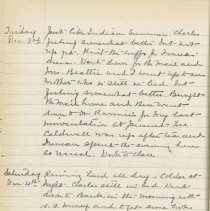 Friday Just like Indian Summer. Charles
Dec. 3rd feeling somewhat better but not
up yet. Knit the cuffs of Frances'
dress. Went down for the mail and
Mrs. Beattie and I went up to see
mother who is still in bed but
feeling somewhat better. Brought
the mail home and then went
down to for my coat.
at
Caldwell was up after tea and
spent the evening here
as usual. Date to close.
Saturday Raining hard all day - colder at
Dec 4th night. Charles still in bed. Went
down to Bank in the morning with
S. S. money and to get some